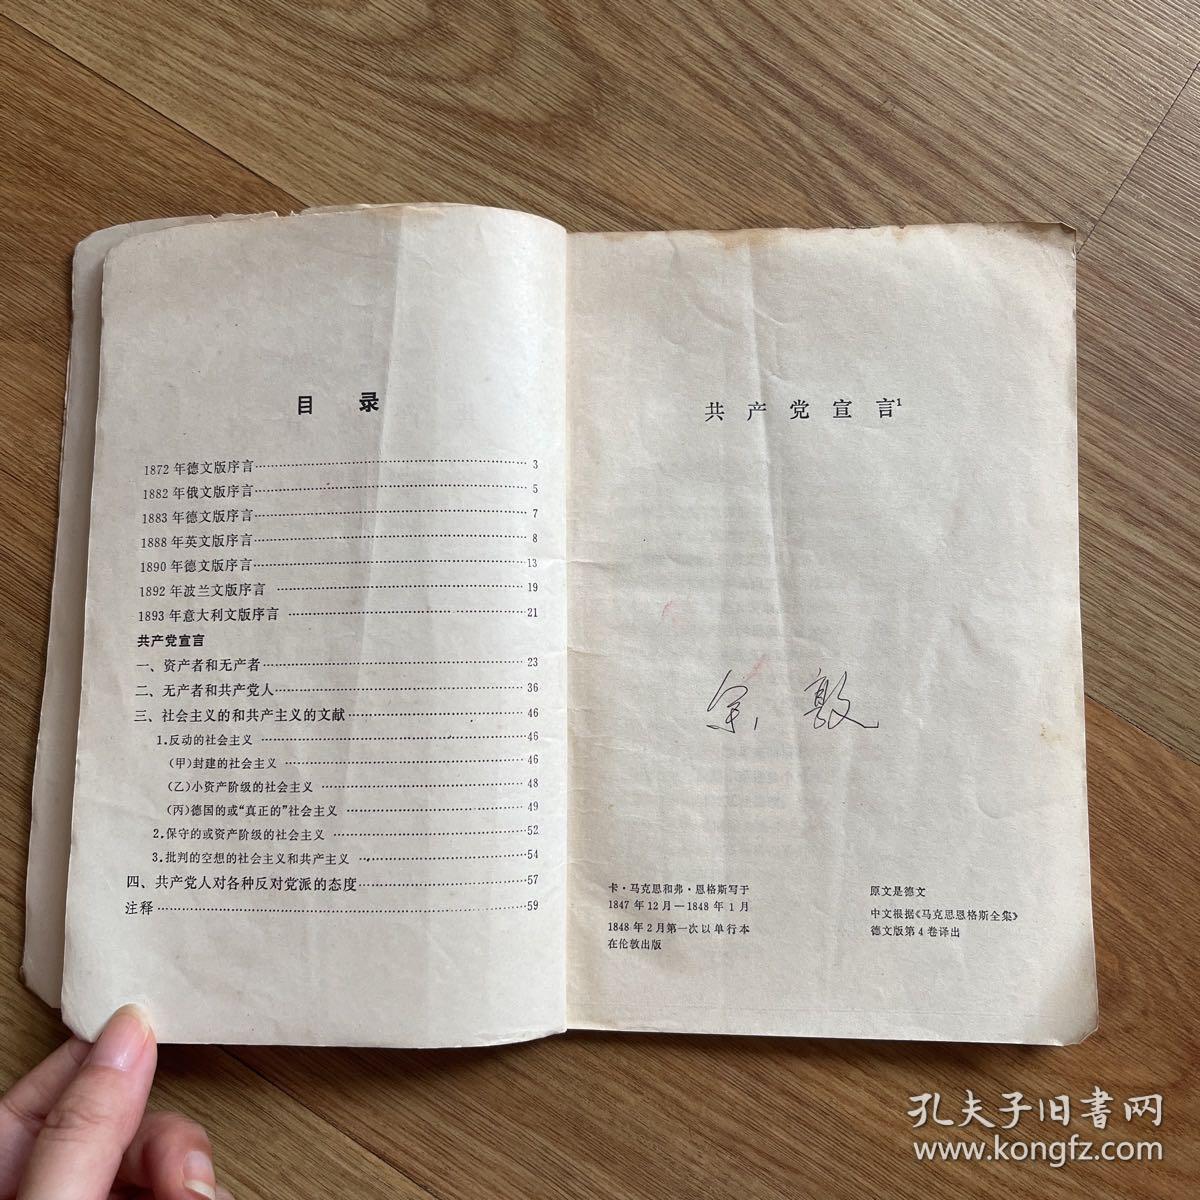 目 录
1872 年德文版序言 3
1882 年俄文版序言 5
1883 年德文版序言 7
1888 年英文版序言 8
1890 年德文版序言 13
1892 年波兰文版序言 19
1893 年意大利文版序言 21
共产党宣言
一、资产者和无产者 23
二、无产者和共产党人 36
三、社会主义的和共产主义的文献 46
1.反动的社会主义 46
(甲)封建的社会主义 46
(乙)小资产阶级的社会主义 48
(丙)德国的或“真正的”社会主义 49
2.保守的或资产阶级的社会主义 52
3.批判的空想的社会主义和共产主义 54
四、共产党人对各种反对党派的态度 57
注释 59
共产党宣言1
敦
卡·马克思和弗·恩格斯写于
1847 年 12 月—1848 年 1 月
1848 年 2 月第一次以单行本
在伦敦出版
原文是德文
中文根据《马克思恩格斯全集》
德文版第 4 卷译出
孔夫子旧書网
www.kongfz.com